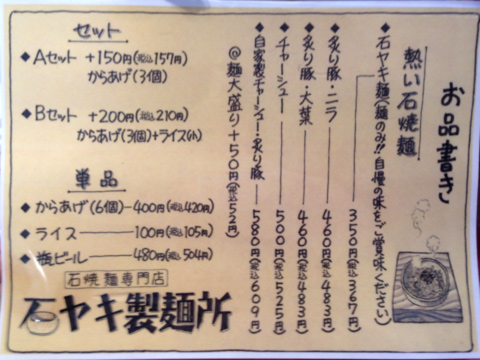 お品書き
熱い石焼麺
◆石ヤキ麺(麺のみ!!自慢の味をご賞味ください)
350円(税込367円)
◆炙り豚・ニラ 460円(税込483円)
◆炙り豚・大葉 460円(税込483円)
◆チャーシュー 500円(税込525円)
◆自家製チャーシュー・炙り豚 580円(税込609円)
@麺大盛り+50円(税込52円)
セット
◆Aセット +150円(税込157円)
からあげ(3個)
◆Bセット +200円(税込210円)
からあげ(3個)+ライス(小)
単品
◆からあげ(6個)-400円(税込420円)
◆ライス 100円(税込105円)
◆瓶ビール 480円(税込504円)
石焼麺専門店
石ヤキ製麺所